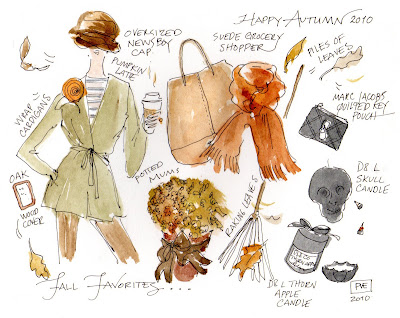 HAPPY AUTUMN 2010
OVERSIZED
NEWSBOY
CAP
SUEDE GROCERY
SHOPPER
PILES OF
LEAVES
PUMPKIN
LATTE
WRAP
CARDIGANS
MARC JACOBS
QUILTED KEY
POUCH
OAK
WOOD
COVER
POTTED
MUMS
RAKING LEAVES
D&L
SKULL
CANDLE
D&L THORN
APPLE
CANDLE
FALL FAVORITES....
PVE
2010